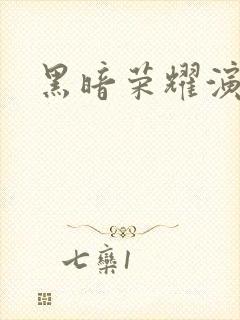 黑暗荣耀演
七欒1